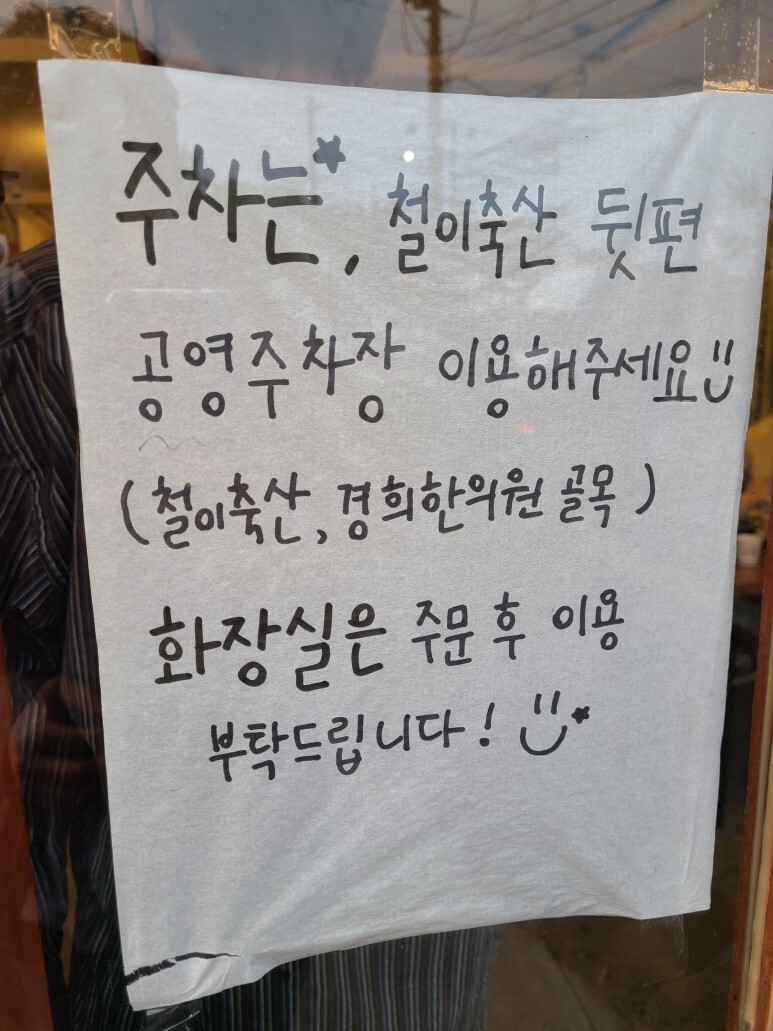 주차는, 철이축산 뒷편
공영주차장 이용해주세요
(철이축산, 경희한의원 골목)
화장실은 주문 후 이용
부탁드립니다!